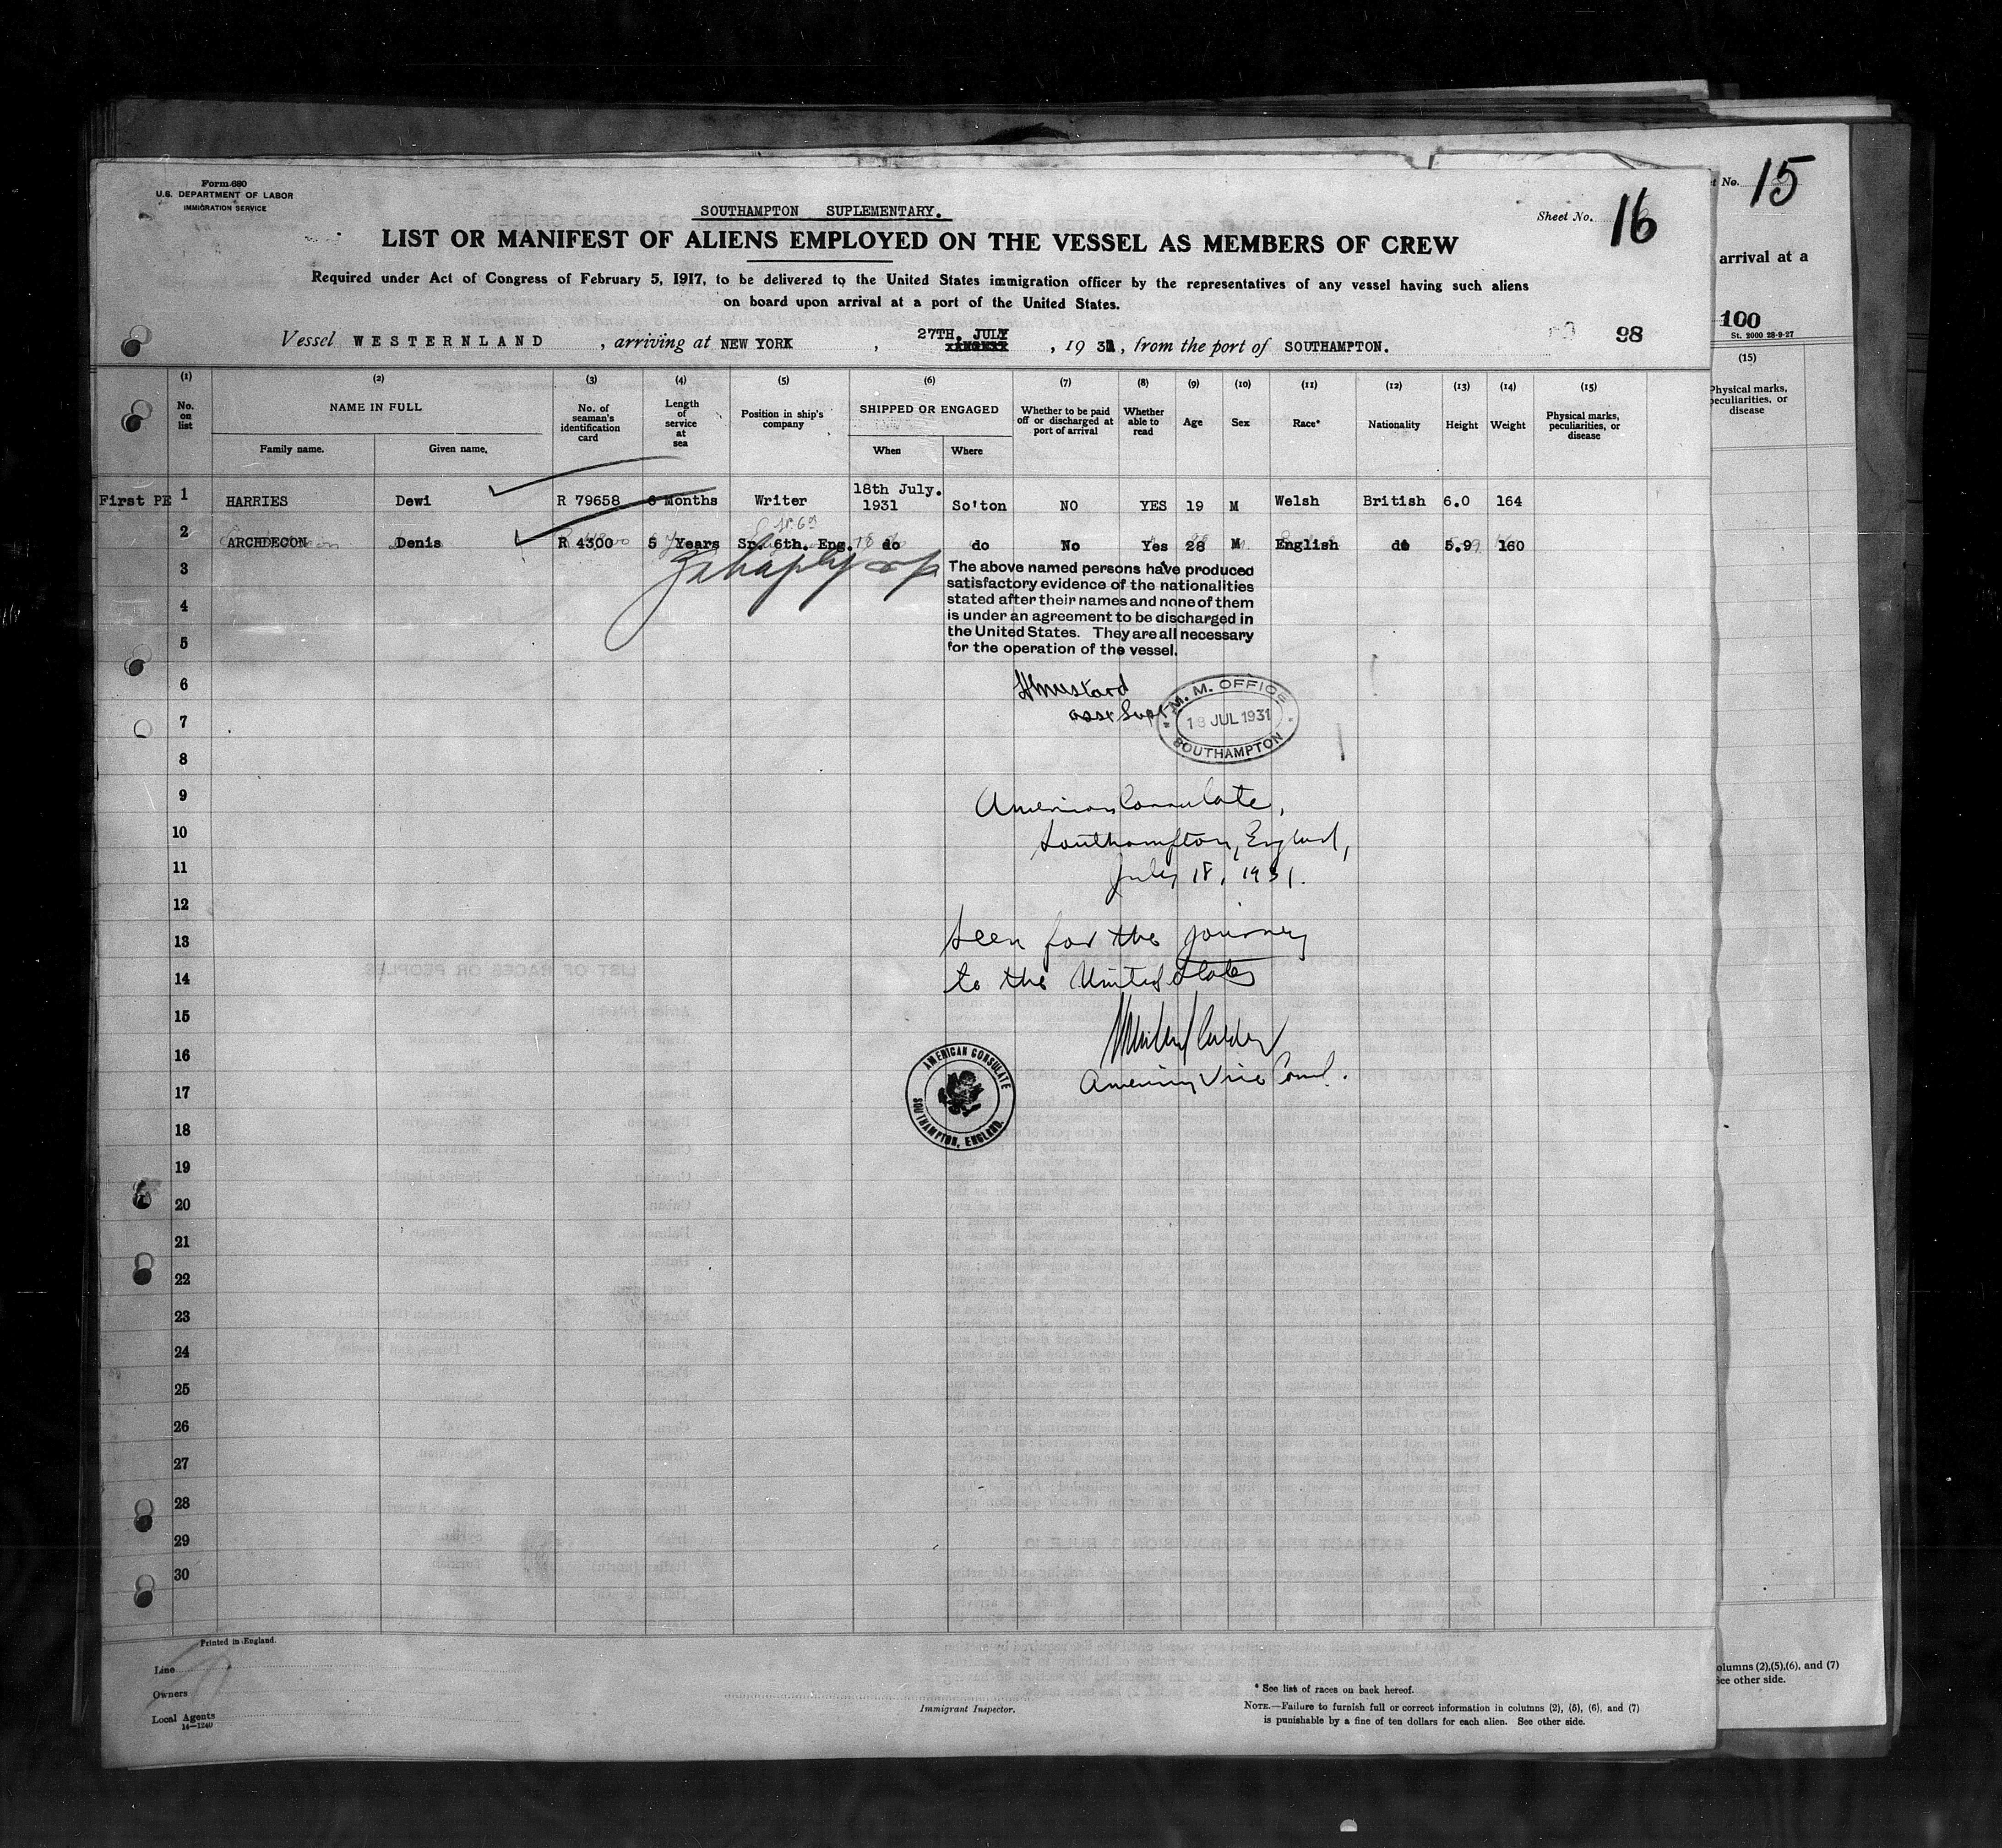 Form 680
U.S. DEPARTMENT OF LABOR
IMMIGRATION SERVICE
SOUTHAMPTON SUPLEMENTARY.
Sheet No. 16
LIST OR MANIFEST OF ALIENS EMPLOYED ON THE VESSEL AS MEMBERS OF CREW
Required under Act of Congress of February 5, 1917, to be delivered to the United States immigration officer by the representatives of any vessel having such aliens
on board upon arrival at a port of the United States.
Vessel WESTERNLAND, arriving at NEW YORK, 27TH. JULY, 1931, from the port of SOUTHAMPTON.
98
(1) (2) (3) (4) (5) (6) (7) (8) (9) (10) (11) (12) (13) (14) (15)
No. on list
NAME IN FULL
Family name. Given name.
No. of seaman's identification card
Length of service at sea
Position in ship's company
SHIPPED OR ENGAGED
When Where
Whether to be paid off or discharged at port of arrival
Whether able to read
Age
Sex
Race*
Nationality
Height
Weight
Physical marks, peculiarities, or disease
First PE 1 HARRIES Dewi R 79658 6 Months Writer 18th July. 1931 So'ton NO YES 19 M Welsh British 6.0 164
2 ARCHDECON Denis R 4300 5 Years Sr. 6th. Eng. do do No Yes 28 M English do 5.9 160
3
4
5
6
7
8
9
10
11
12
13
14
15
16
17
18
19
20
21
22
23
24
25
26
27
28
29
30
The above named persons have produced
satisfactory evidence of the nationalities
stated after their names and none of them
is under an agreement to be discharged in
the United States. They are all necessary
for the operation of the vessel.
HMustard
asst Supt
M. M. OFFICE
18 JUL 1931
SOUTHAMPTON
American Consulate,
Southampton, England,
July 18, 1931.
Seen for the journey
to the United States
American Vice Consul.
AMERICAN CONSULATE
SOUTHAMPTON, ENGLAND.
Printed in England.
Line
Owners
Local Agents
14—1240
Immigrant Inspector.
* See list of races on back hereof.
NOTE.—Failure to furnish full or correct information in columns (2), (5), (6), and (7)
is punishable by a fine of ten dollars for each alien. See other side.
No. 15
arrival at a
100
St. 2000 28-9-27
(15)
Physical marks,
peculiarities, or
disease
olumns (2),(5),(6), and (7)
See other side.